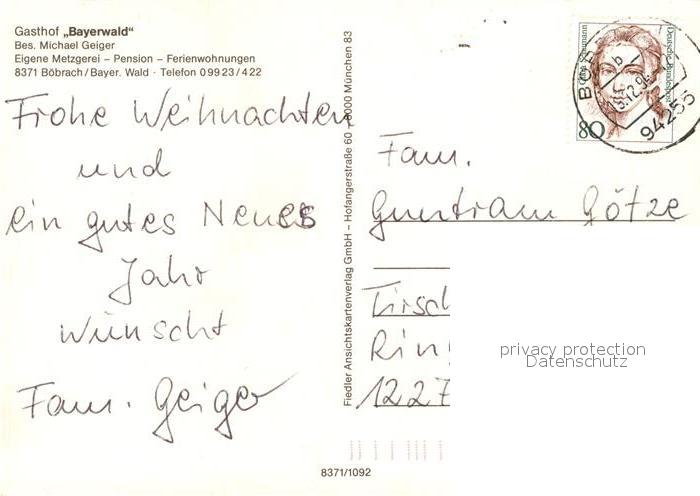 Gasthof „Bayerwald“
Bes. Michael Geiger
Eigene Metzgerei – Pension – Ferienwohnungen
8371 Böbrach/Bayer. Wald · Telefon 09923/422
Frohe Weihnachten
und
ein gutes Neues
Jahr
wünscht
Fam. Geiger
8371/1092
Fiedler Ansichtskartenverlag GmbH – Hofangerstraße 60 – 8000 München 83
Deutsche Bundespost
80
b
94255
Fam.
Guntram Götze
Tirsch
Rin
1227
privacy protection
Datenschutz